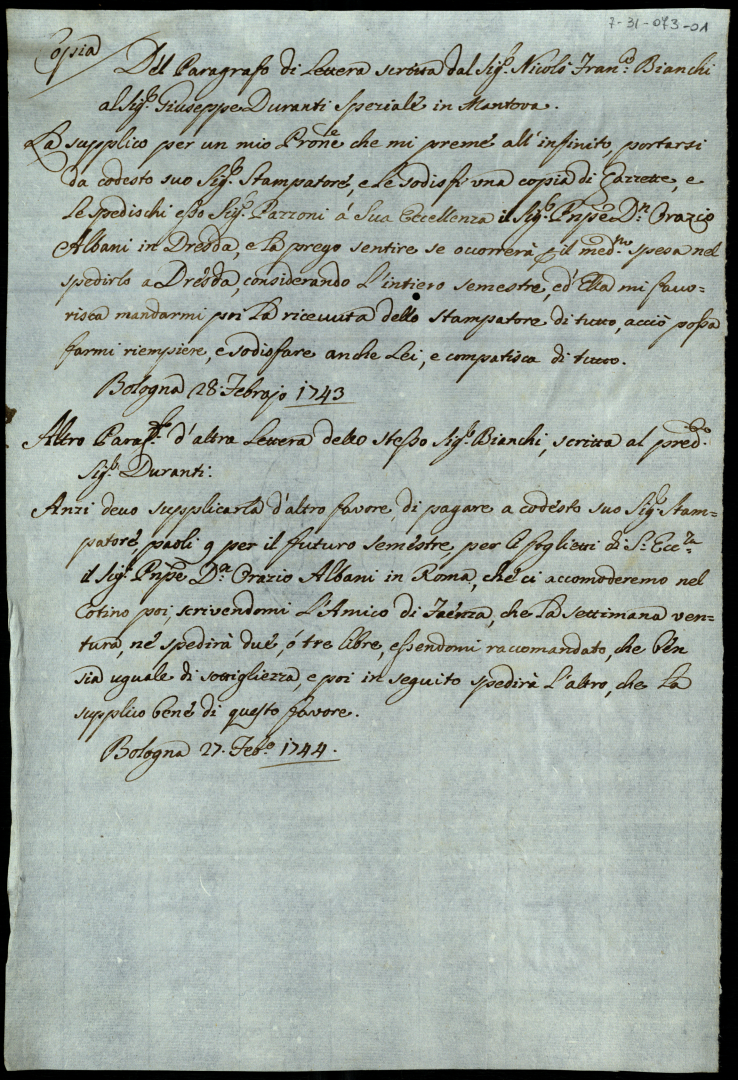 7-31-073-01
Copia Del Paragrafo di Lettera scritta dal Sig.r Nicolò Fran.o Bianchi
al Sig.r Giuseppe Duranti speziale in Mantova.
La supplico per un mio Prone che mi preme all'infinito, portarsi
da codesto suo Sig.r Stampatore, e le sodisfi una copia di Gazzette, e
le spedischi esso Sig.r Pazzoni á Sua Eccellenza il Sig.r Pnpe Dn. Orazio
Albani in Dresda, e la prego sentire se occorrerà il med.mo spesa nel
spedirlo a Dresda, considerando l'intiero semestre, ed Ella mi favo=
risca mandarmi poi la ricevuta dello stampatore di tutto, acciò possa
farmi riempiere, e sodisfare anche Lei, e compatisca di tutto.
Bologna 28 Febrajo 1743
Altro Paraf.o d'altra Lettera dello stesso Sig.r Bianchi, scritta al pred.o
Sig.r Duranti:
Anzi devo supplicarla d'altro favore, di pagare a codesto suo Sig.r Stam=
patore, paoli 9 per il futuro semestre, per li foglietti di S. Ecc.za
il Sig.r Pnpe Dn. Orazio Albani in Roma, che ci accomoderemo nel
Cotino poi, scrivendomi l'Amico di Faenza, che la settimana ven=
tura, ne spedirà due, ó tre libre, essendomi raccomandato, che ben
sia uguale di sottigliezza, e poi in seguito spedirà l'altro, che la
supplico bene di questo favore.
Bologna 27. Feb.o 1744.